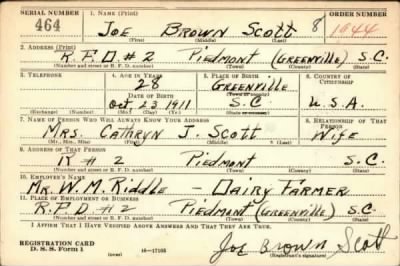 SERIAL NUMBER 1. NAME (Print) ORDER NUMBER
464 JOE BROWN SCOTT 8 1644
(First) (Middle) (Last)
2. ADDRESS (Print)
R.F.D #2 Piedmont (Greenville) S.C.
(Number and street or R. F. D. number) (Town) (County) (State)
3. TELEPHONE 4. AGE IN YEARS 5. PLACE OF BIRTH 6. COUNTRY OF CITIZENSHIP
28 Greenville
DATE OF BIRTH (Town or county)
Oct. 23 1911 S.C U.S.A.
(Exchange) (Number) (Mo.) (Day) (Yr.) (State or country)
7. NAME OF PERSON WHO WILL ALWAYS KNOW YOUR ADDRESS 8. RELATIONSHIP OF THAT PERSON
Mrs. Cathryn J. Scott Wife
(Mr., Mrs., Miss) (First) (Middle) (Last)
9. ADDRESS OF THAT PERSON
R #2 Piedmont S.C.
(Number and street or R. F. D. number) (Town) (County) (State)
10. EMPLOYER'S NAME
Mr. W. M. Riddle - Dairy Farmer
11. PLACE OF EMPLOYMENT OR BUSINESS
R.F.D #2 Piedmont (Greenville) S.C.
(Number and street or R. F. D. number) (Town) (County) (State)
I AFFIRM THAT I HAVE VERIFIED ABOVE ANSWERS AND THAT THEY ARE TRUE.
Joe Brown Scott
REGISTRATION CARD
D. S. S. Form 1 (over) 16-17105 (Registrant's signature)